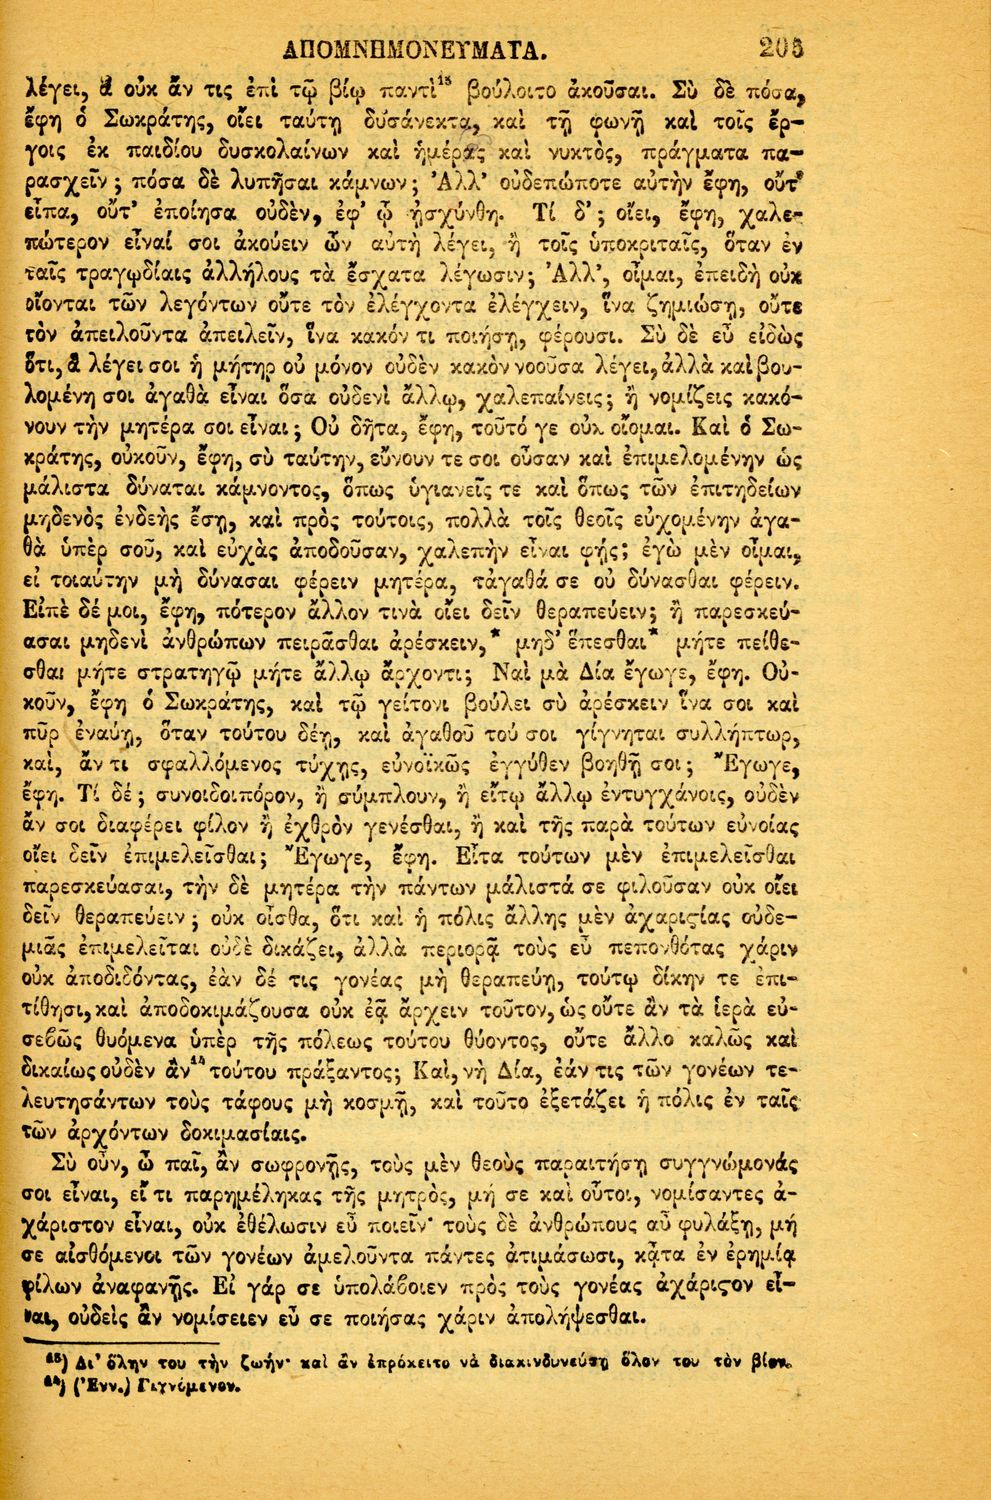 ΑΠΟΜΝΗΜΟΝΕΥΜΑΤΑ. 205
λέγει, ἃ οὐκ ἄν τις ἐπὶ τῷ βίῳ παντὶ¹³ βούλοιτο ἀκοῦσαι. Σὺ δὲ πόσα,
ἔφη ὁ Σωκράτης, οἴει ταύτῃ δυσάνεκτα, καὶ τῇ φωνῇ καὶ τοῖς ἔρ-
γοις ἐκ παιδίου δυσκολαίνων καὶ ἡμέρας καὶ νυκτὸς, πράγματα πα-
ρασχεῖν ; πόσα δὲ λυπῆσαι κάμνων ; Ἀλλ' οὐδεπώποτε αὐτὴν ἔφη, οὔτ'
εἶπα, οὔτ' ἐποίησα οὐδὲν, ἐφ' ᾧ ᾐσχύνθη. Τί δ' ; οἴει, ἔφη, χαλε-
πώτερον εἶναί σοι ἀκούειν ὧν αὐτὴ λέγει, ἢ τοῖς ὑποκριταῖς, ὅταν ἐν
ταῖς τραγῳδίαις ἀλλήλους τὰ ἔσχατα λέγωσιν; Ἀλλ', οἶμαι, ἐπειδὴ οὐκ
οἴονται τῶν λεγόντων οὔτε τὸν ἐλέγχοντα ἐλέγχειν, ἵνα ζημιώσῃ, οὔτε
τὸν ἀπειλοῦντα ἀπειλεῖν, ἵνα κακόν τι ποιήσῃ, φέρουσι. Σὺ δὲ εὖ εἰδὼς
ὅτι, ἃ λέγει σοι ἡ μήτηρ οὐ μόνον οὐδὲν κακὸν νοοῦσα λέγει, ἀλλὰ καὶ βου-
λομένη σοι ἀγαθὰ εἶναι ὅσα οὐδενὶ ἄλλῳ, χαλεπαίνεις; ἢ νομίζεις κακό-
νουν τὴν μητέρα σοι εἶναι ; Οὐ δῆτα, ἔφη, τοῦτό γε οὐκ οἴομαι. Καὶ ὁ Σω-
κράτης, οὐκοῦν, ἔφη, σὺ ταύτην, εὔνουν τε σοι οὖσαν καὶ ἐπιμελομένην ὡς
μάλιστα δύναται κάμνοντος, ὅπως ὑγιανεῖς τε καὶ ὅπως τῶν ἐπιτηδείων
μηδενὸς ἐνδεὴς ἔσῃ, καὶ πρὸς τούτοις, πολλὰ τοῖς θεοῖς εὐχομένην ἀγα-
θὰ ὑπὲρ σοῦ, καὶ εὐχὰς ἀποδοῦσαν, χαλεπὴν εἶναι φῄς; ἐγὼ μὲν οἶμαι,
εἰ τοιαύτην μὴ δύνασαι φέρειν μητέρα, τἀγαθά σε οὐ δύνασθαι φέρειν.
Εἰπὲ δέ μοι, ἔφη, πότερον ἄλλον τινὰ οἴει δεῖν θεραπεύειν; ἢ παρεσκεύ-
ασαι μηδενὶ ἀνθρώπων πειρᾶσθαι ἀρέσκειν,* μηδ' ἕπεσθαι* μήτε πείθε-
σθαι μήτε στρατηγῷ μήτε ἄλλῳ ἄρχοντι; Ναὶ μὰ Δία ἔγωγε, ἔφη. Οὐ-
κοῦν, ἔφη ὁ Σωκράτης, καὶ τῷ γείτονι βούλει σὺ ἀρέσκειν ἵνα σοι καὶ
πῦρ ἐναύῃ, ὅταν τούτου δέῃ, καὶ ἀγαθοῦ τού σοι γίγνηται συλλήπτωρ,
καὶ, ἄν τι σφαλλόμενος τύχῃς, εὐνοϊκῶς ἐγγύθεν βοηθῇ σοι ; Ἔγωγε,
ἔφη. Τί δέ ; συνοιδοιπόρον, ἢ σύμπλουν, ἢ εἴτῳ ἄλλῳ ἐντυγχάνοις, οὐδὲν
ἄν σοι διαφέρει φίλον ἢ ἐχθρὸν γενέσθαι, ἢ καὶ τῆς παρὰ τούτων εὐνοίας
οἴει δεῖν ἐπιμελεῖσθαι; Ἔγωγε, ἔφη. Εἶτα τούτων μὲν ἐπιμελεῖσθαι
παρεσκεύασαι, τὴν δὲ μητέρα τὴν πάντων μάλιστά σε φιλοῦσαν οὐκ οἴει
δεῖν θεραπεύειν ; οὐκ οἶσθα, ὅτι καὶ ἡ πόλις ἄλλης μὲν ἀχαριϛίας οὐδε-
μιᾶς ἐπιμελεῖται οὐδὲ δικάζει, ἀλλὰ περιορᾷ τοὺς εὖ πεπονθότας χάριν
οὐκ ἀποδιδόντας, ἐὰν δέ τις γονέας μὴ θεραπεύῃ, τούτῳ δίκην τε ἐπι-
τίθησι, καὶ ἀποδοκιμάζουσα οὐκ ἐᾷ ἄρχειν τοῦτον, ὡς οὔτε ἂν τὰ ἱερὰ εὐ-
σεϐῶς θυόμενα ὑπὲρ τῆς πόλεως τούτου θύοντος, οὔτε ἄλλο καλῶς καὶ
δικαίως οὐδὲν ἂν¹⁴ τούτου πράξαντος; Καὶ, νὴ Δία, ἐάν τις τῶν γονέων τε-
λευτησάντων τοὺς τάφους μὴ κοσμῇ, καὶ τοῦτο ἐξετάζει ἡ πόλις ἐν ταῖς
τῶν ἀρχόντων δοκιμασίαις.
Σὺ οὖν, ὦ παῖ, ἂν σωφρονῇς, τοὺς μὲν θεοὺς παραιτήσῃ συγγνώμονάς
σοι εἶναι, εἴ τι παρημέληκας τῆς μητρὸς, μή σε καὶ οὗτοι, νομίσαντες ἀ-
χάριστον εἶναι, οὐκ ἐθέλωσιν εὖ ποιεῖν· τοὺς δὲ ἀνθρώπους αὖ φυλάξῃ, μή
σε αἰσθόμενοι τῶν γονέων ἀμελοῦντα πάντες ἀτιμάσωσι, κᾆτα ἐν ἐρημίᾳ
φίλων ἀναφανῇς. Εἰ γάρ σε ὑπολάϐοιεν πρὸς τοὺς γονέας ἀχάριϛον εἶ-
ναι, οὐδεὶς ἂν νομίσειεν εὖ σε ποιήσας χάριν ἀπολήψεσθαι.
¹³) Δι' ὅλην του τὴν ζωήν· καὶ ἂν ἐπρόκειτο νὰ διακινδυνεύσῃ ὅλον του τὸν βίον.
¹⁴) (Ἐνν.) Γιγνόμενον.